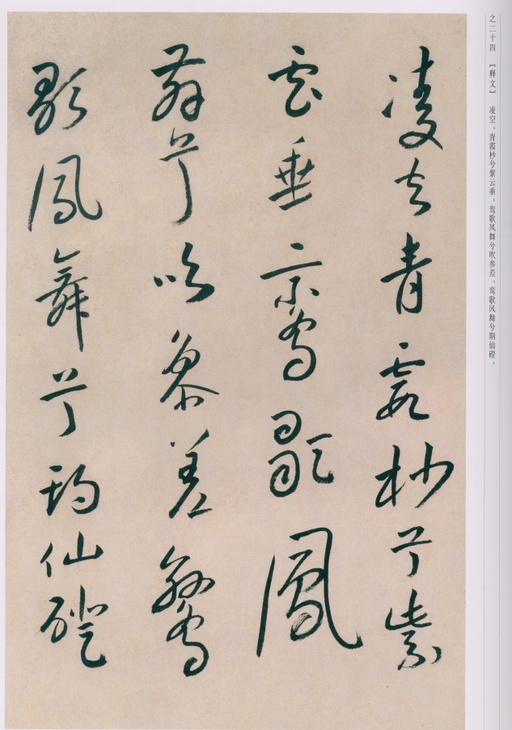 之二十四 【释文】 凌空，青霞杪兮紫云垂，鸾歌凤舞兮吹参差，鸾歌凤舞兮期仙磴，
凌空青霞杪兮紫
云垂鸾歌鳳
舞兮吹參差鸞
歌鳳舞兮期仙磴